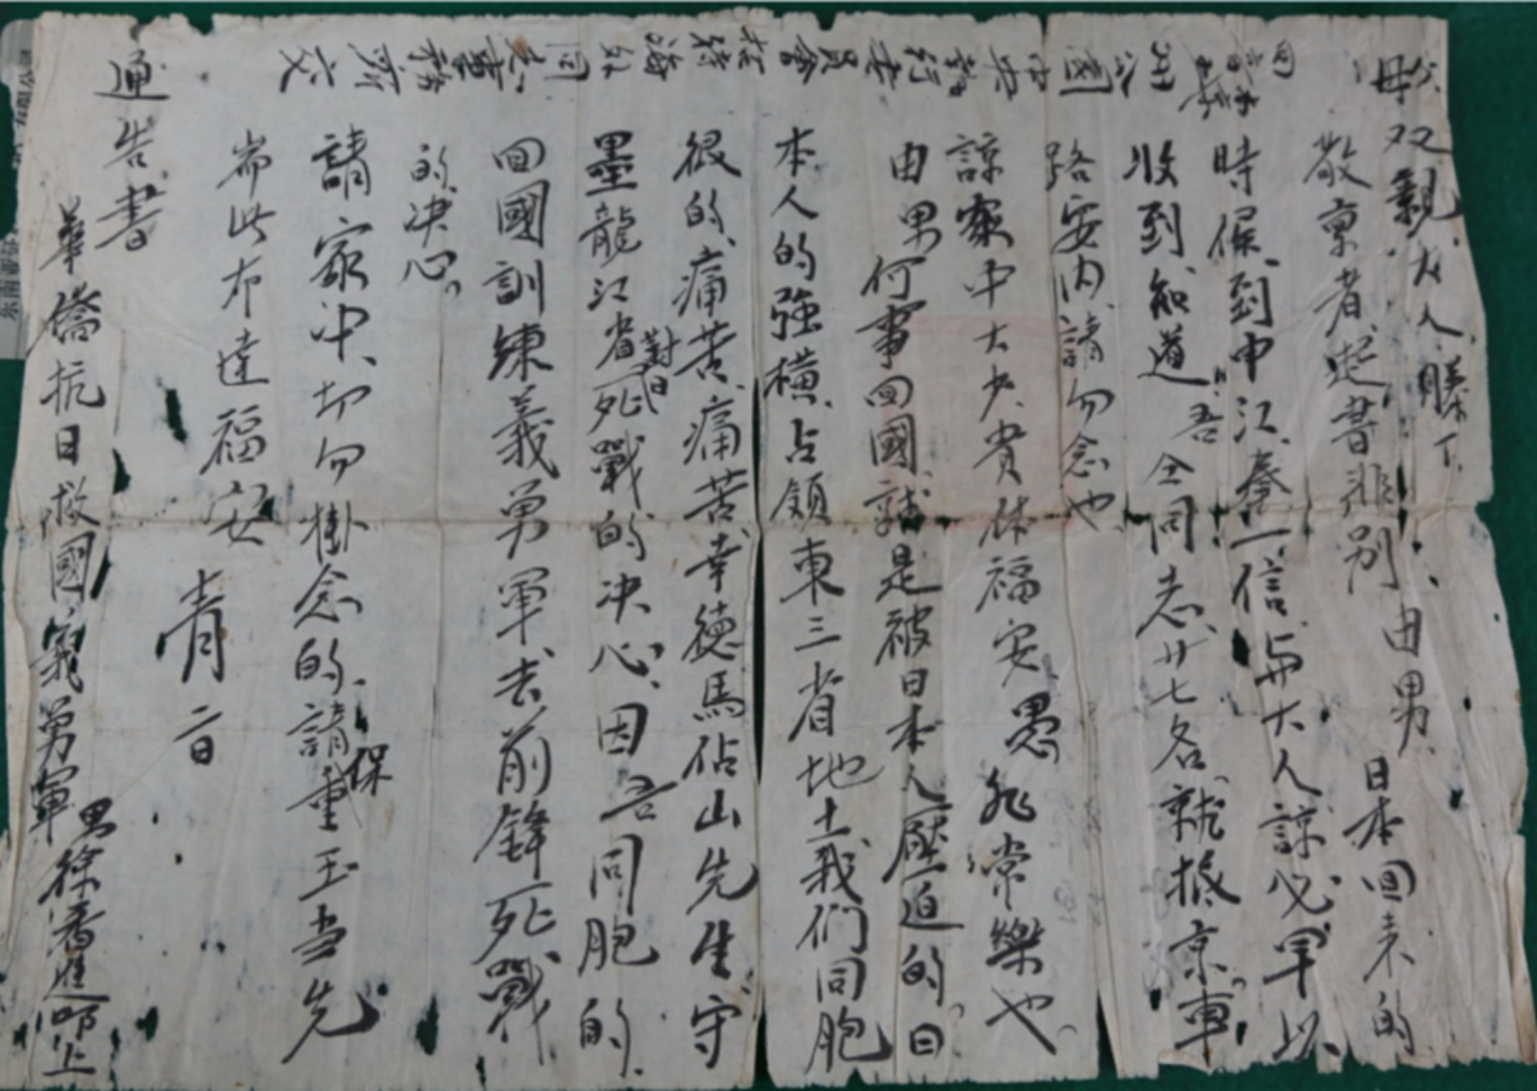 父母双親大人膝下
敬稟者起書非別由男日本回来的
時候到申江奉一信与大人諒必早以
收到知道吾仝同志廿七名就抵京車
路安内請勿念也
諒家中大少貴体福安愚非常樂也
由男何事回國就是被日本人壓迫的日
本人的強橫占領東三省地土我们同胞
很的痛苦痛苦幸德馬佔山先生守
墨龍江省對日死戰的决心因吾同胞的
回國訓練義勇軍去前鋒死戰
的决心
請家中切勿掛念的請保重玉
耑此布達福安
青
通告書
華僑抗日救國義勇軍
男徐 進叩上
中央執行委員會
海外